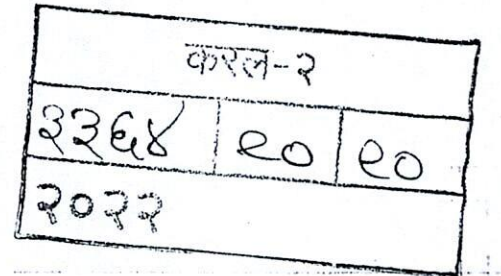 करल-२
३३६४ १० १०
२०२२